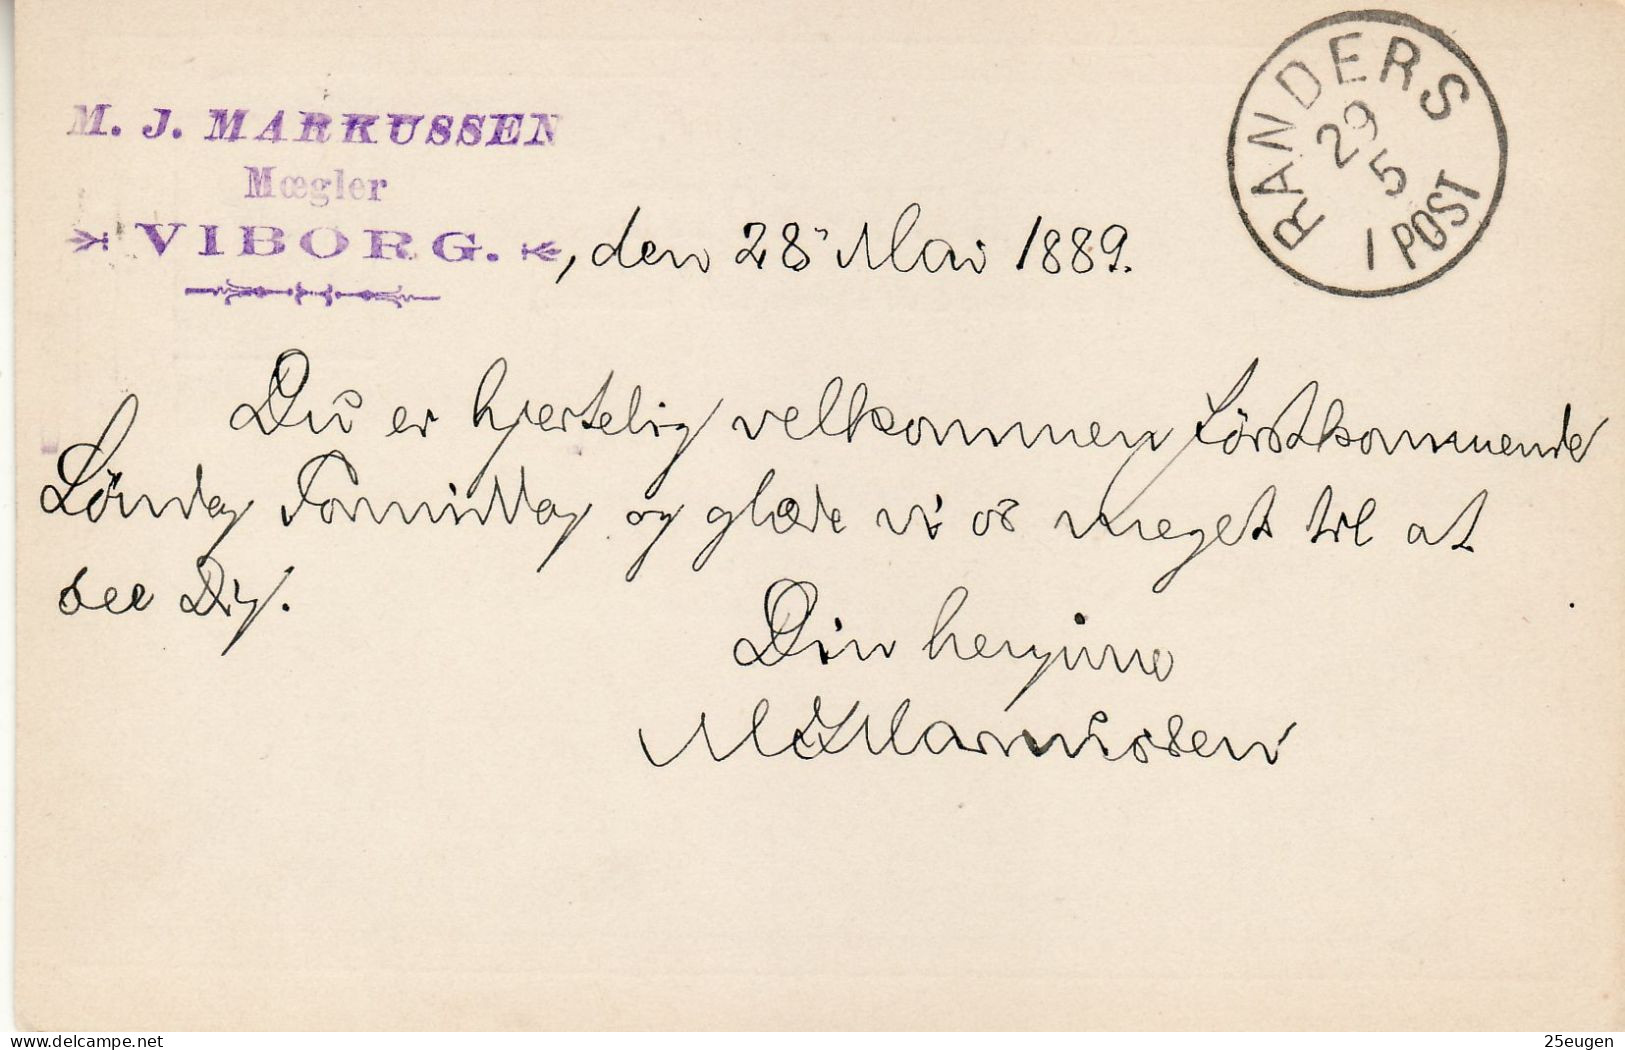 M. J. MARKUSSEN
Mœgler
VIBORG.
, den 28' Mai 1889.
RANDERS
29
5
1 POST
Du er hjertelig velkommen förstkommende
Lördag Formiddag og glæde vi os meget til at
see Dig.
Din hengivne
MJMarkussen
www.delcampe.net
25eugen